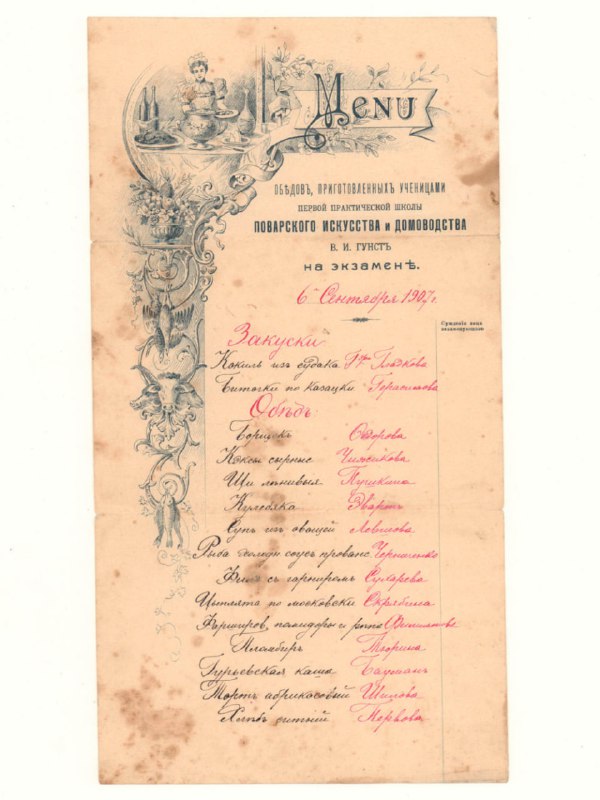 Menu
ОБѢДОВЪ, ПРИГОТОВЛЕННЫХЪ УЧЕНИЦАМИ
ПЕРВОЙ ПРАКТИЧЕСКОЙ ШКОЛЫ
ПОВАРСКОГО ИСКУССТВА и ДОМОВОДСТВА
В. И. ГУНСТЪ
на экзаменѣ.
6 Сентября 1907 г.
Сужденія лицъ
экзаменующихъ
Закуски
Кокиль изъ судака Гладкова
Биточки по казацки Герасимова
Обѣдъ
Борщокъ
Кэксы сырные Чижикова
Щи лѣнивыя Пушкина
Кулебяка Эвартъ
Супъ изъ овощей Левшова
Рыба холодн соусъ провансъ
Филе съ гарниромъ Сударова
Цыплята по московски Скрябина
Фарширов. помидоры и рѣпа
Пломбиръ
Гурьевская каша Бауманъ
Тортъ абрикосовый Шилова
Хлѣбъ ситній